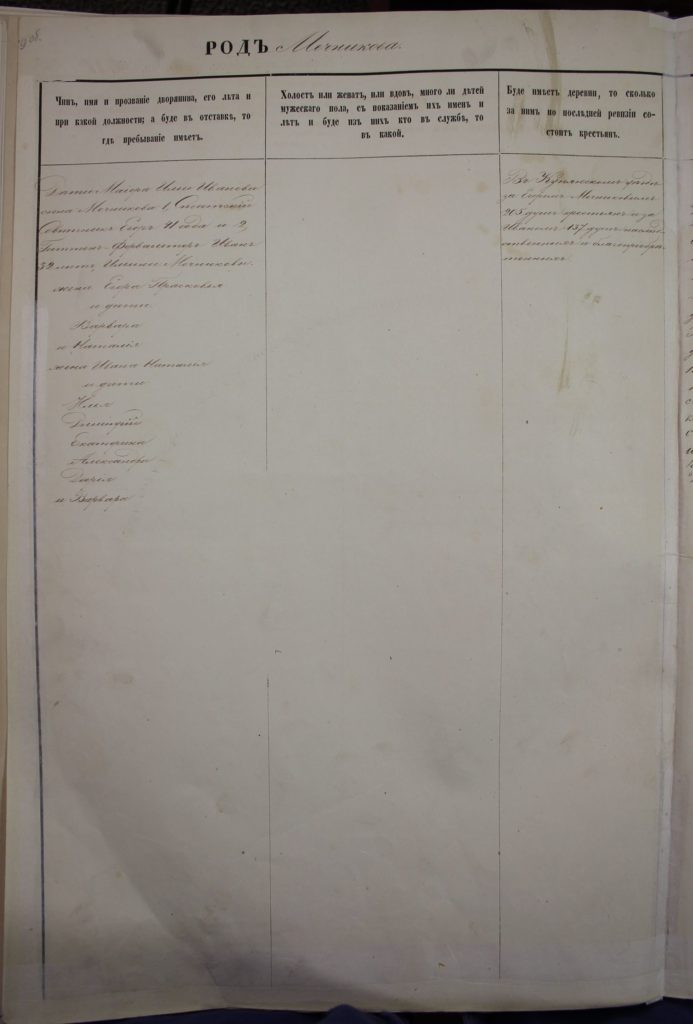 об.
РОДЪ Мечникова.
Чинъ, имя и прозваніе дворянина, его лѣта и
при какой должности; а буде въ отставкѣ, то
гдѣ пребываніе имѣетъ.
Холостъ или женатъ, или вдовъ, много ли дѣтей
мужескаго пола, съ показаніемъ ихъ именъ и
лѣтъ и буде изъ нихъ кто въ службѣ, то
въ какой.
Буде имѣетъ деревни, то сколько
за нимъ по послѣдней ревизіи со-
стоитъ крестьянъ.
Дѣти Маіора Ильи Иванова
сына Мечникова 1, Статскій
Совѣтникъ Егоръ года и 2,
Гиттенъ Фервалтеръ Иванъ
32 лѣтъ, Ильины Мечниковы.
жена Егора Прасковья
и дѣти
Варвара
и Наталія
жена Ивана Наталья
и дѣти
Илья
Дмитрій
Екатерина
Александра
Дарья
и Варвара
Въ Купянскомъ уѣздѣ
за Егоромъ Мечниковымъ
205 душъ крестьянъ и за
Иваномъ 137 душъ наслѣд-
ственныхъ и благопріобрѣ-
тенныхъ